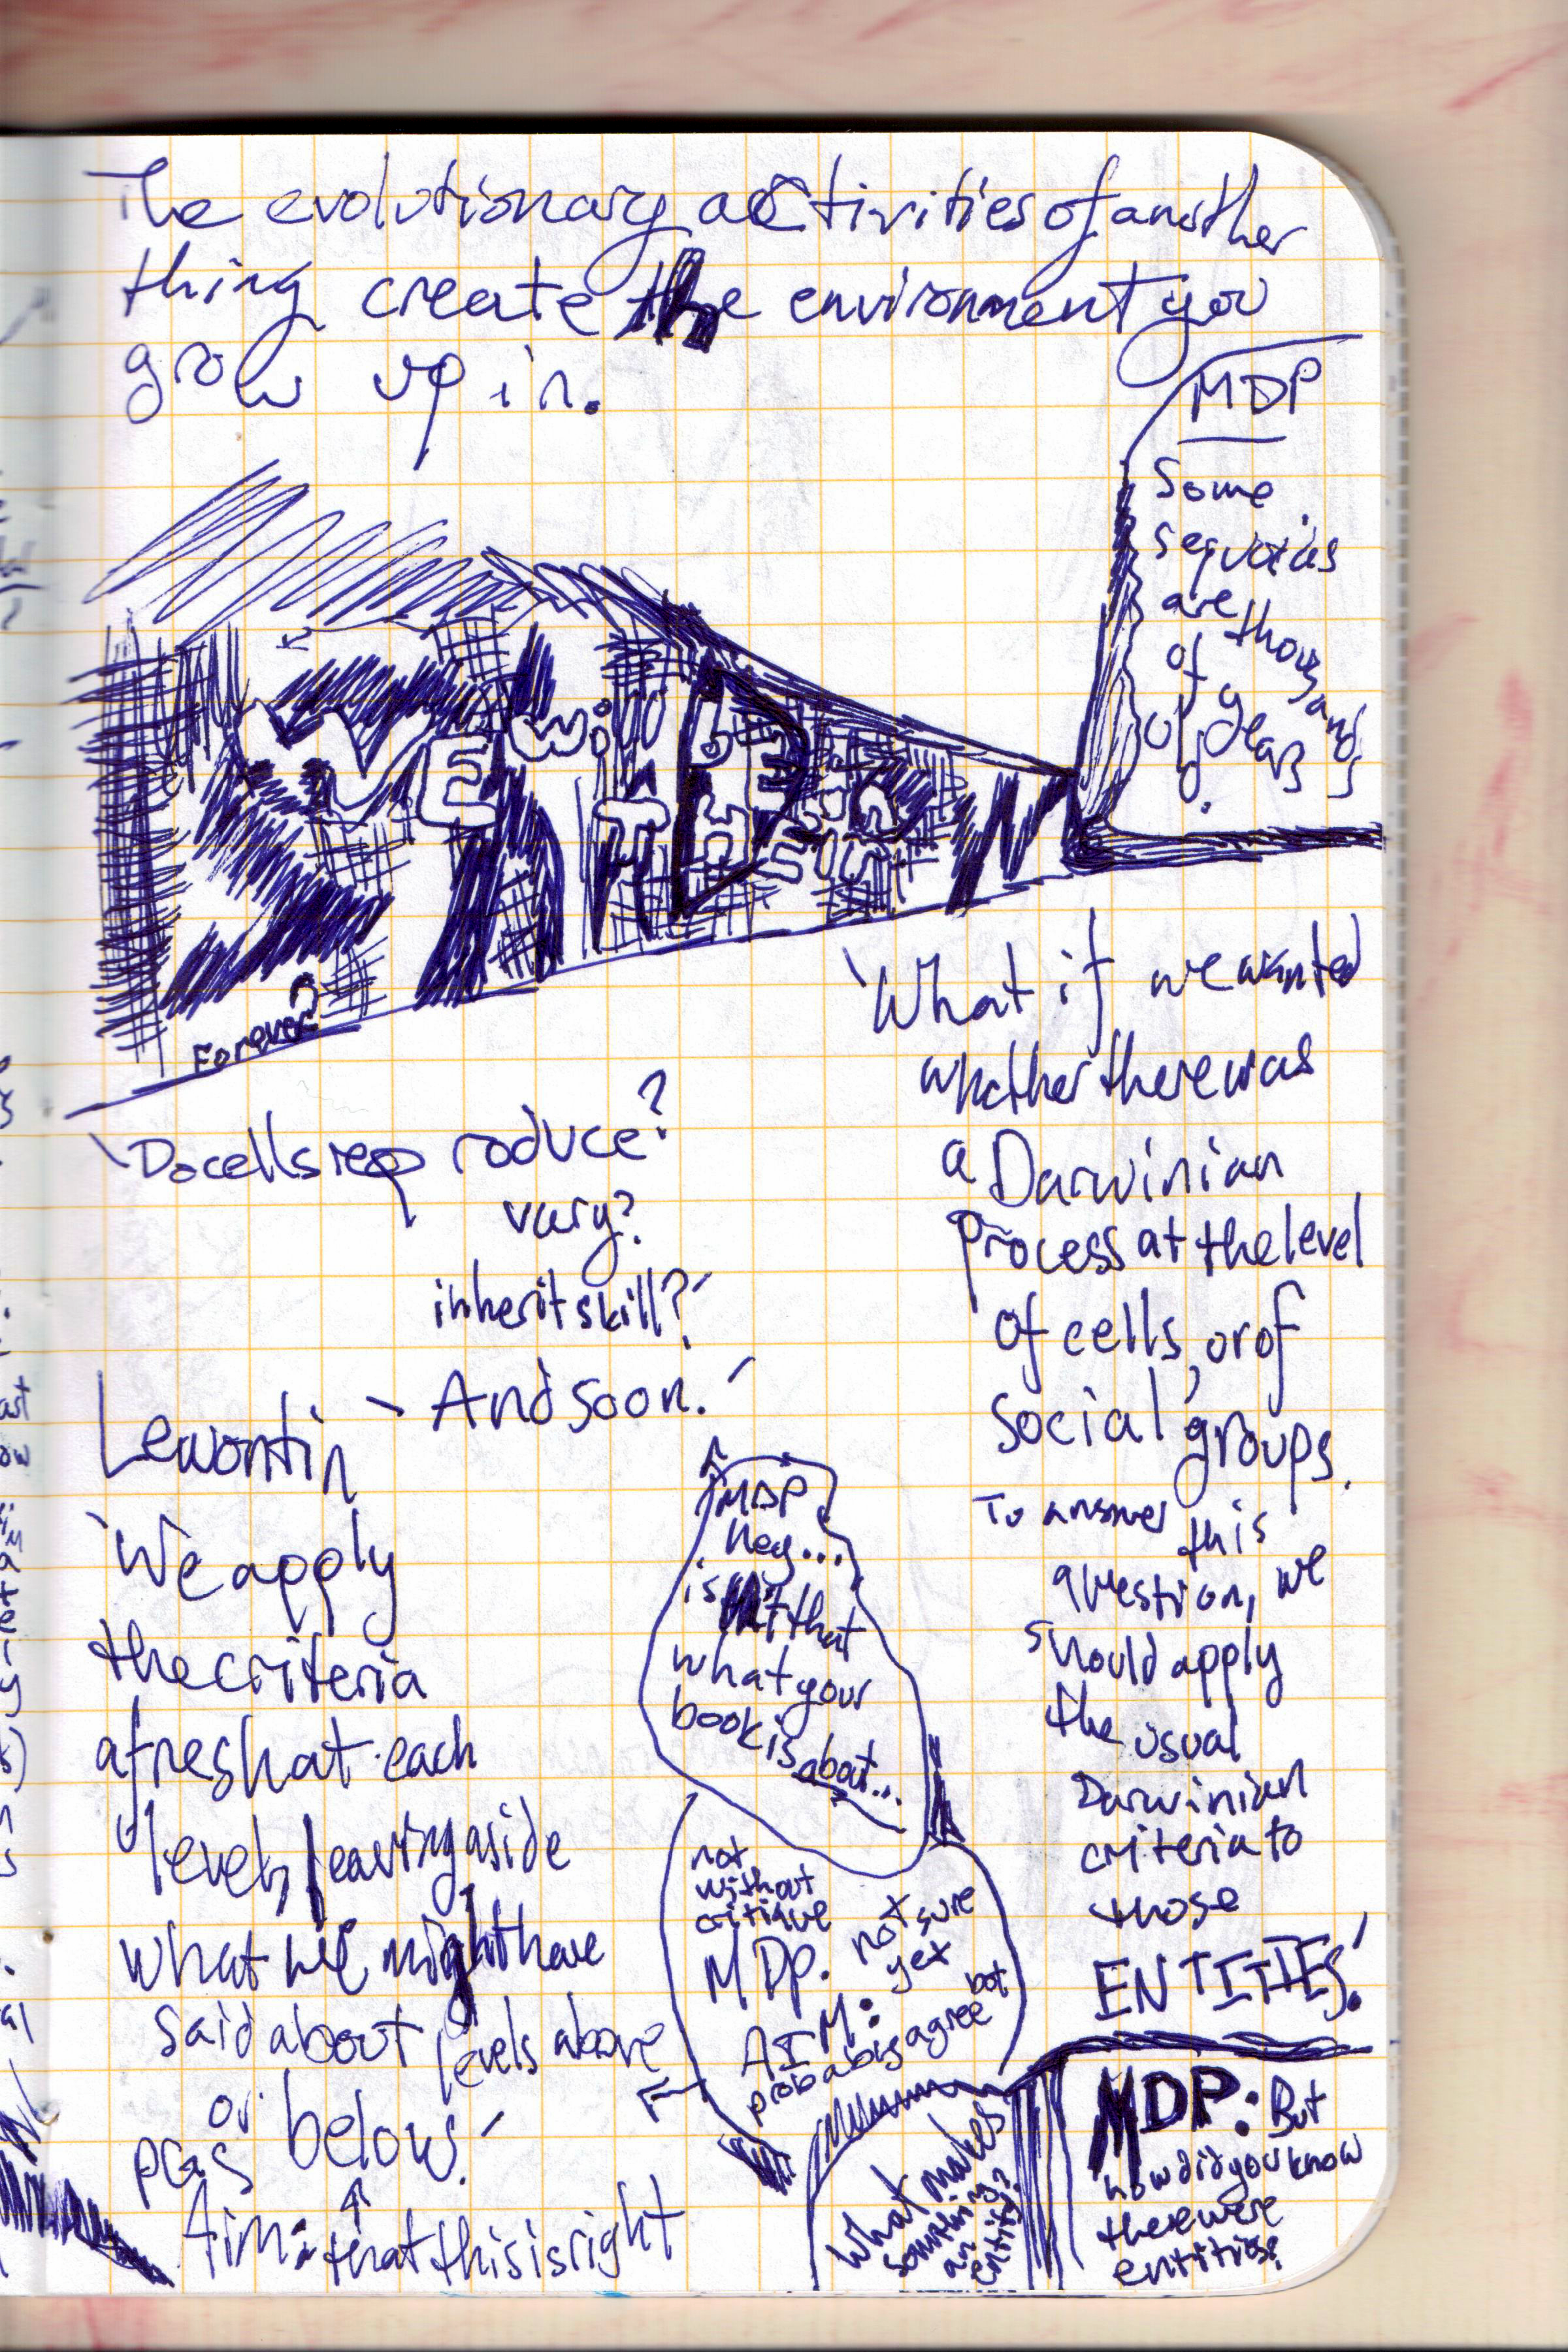 The evolutionary activities of another
thing create the environment you
grow up in.
MDP
Some
sequoias
are thousands
of years
old.
WE Will BE
THESE
Forever?
'Do cells reproduce?
vary?
inherit skill?'
'And so on.'
'What if we wanted
whether there was
a Darwinian
process at the level
of cells, or of
social groups.
To answer this
question, we
should apply
the usual
Darwinian
criteria to
those
ENTITIES.'
Lewontin
'We apply
the criteria
afresh at each
level, leaving aside
what we might have
said about levels above
or below.'
PGS
Aim: that this is right
MDP
hey...
isn't that
what your
book is about...
not
without
critique
MDP.
not sure
yet
but
AIM:
probably agree
What makes
something
an
entity?
MDP: But
how did you know
there were
entities?